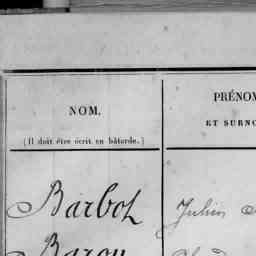 NOM.
PRÉNOM
(Il doit être écrit en bâtarde.)
ET SURNO
Barbot
Julien
Baron